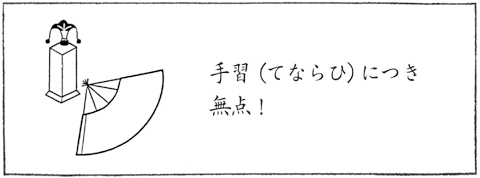 手習(てならひ)につき
無点!